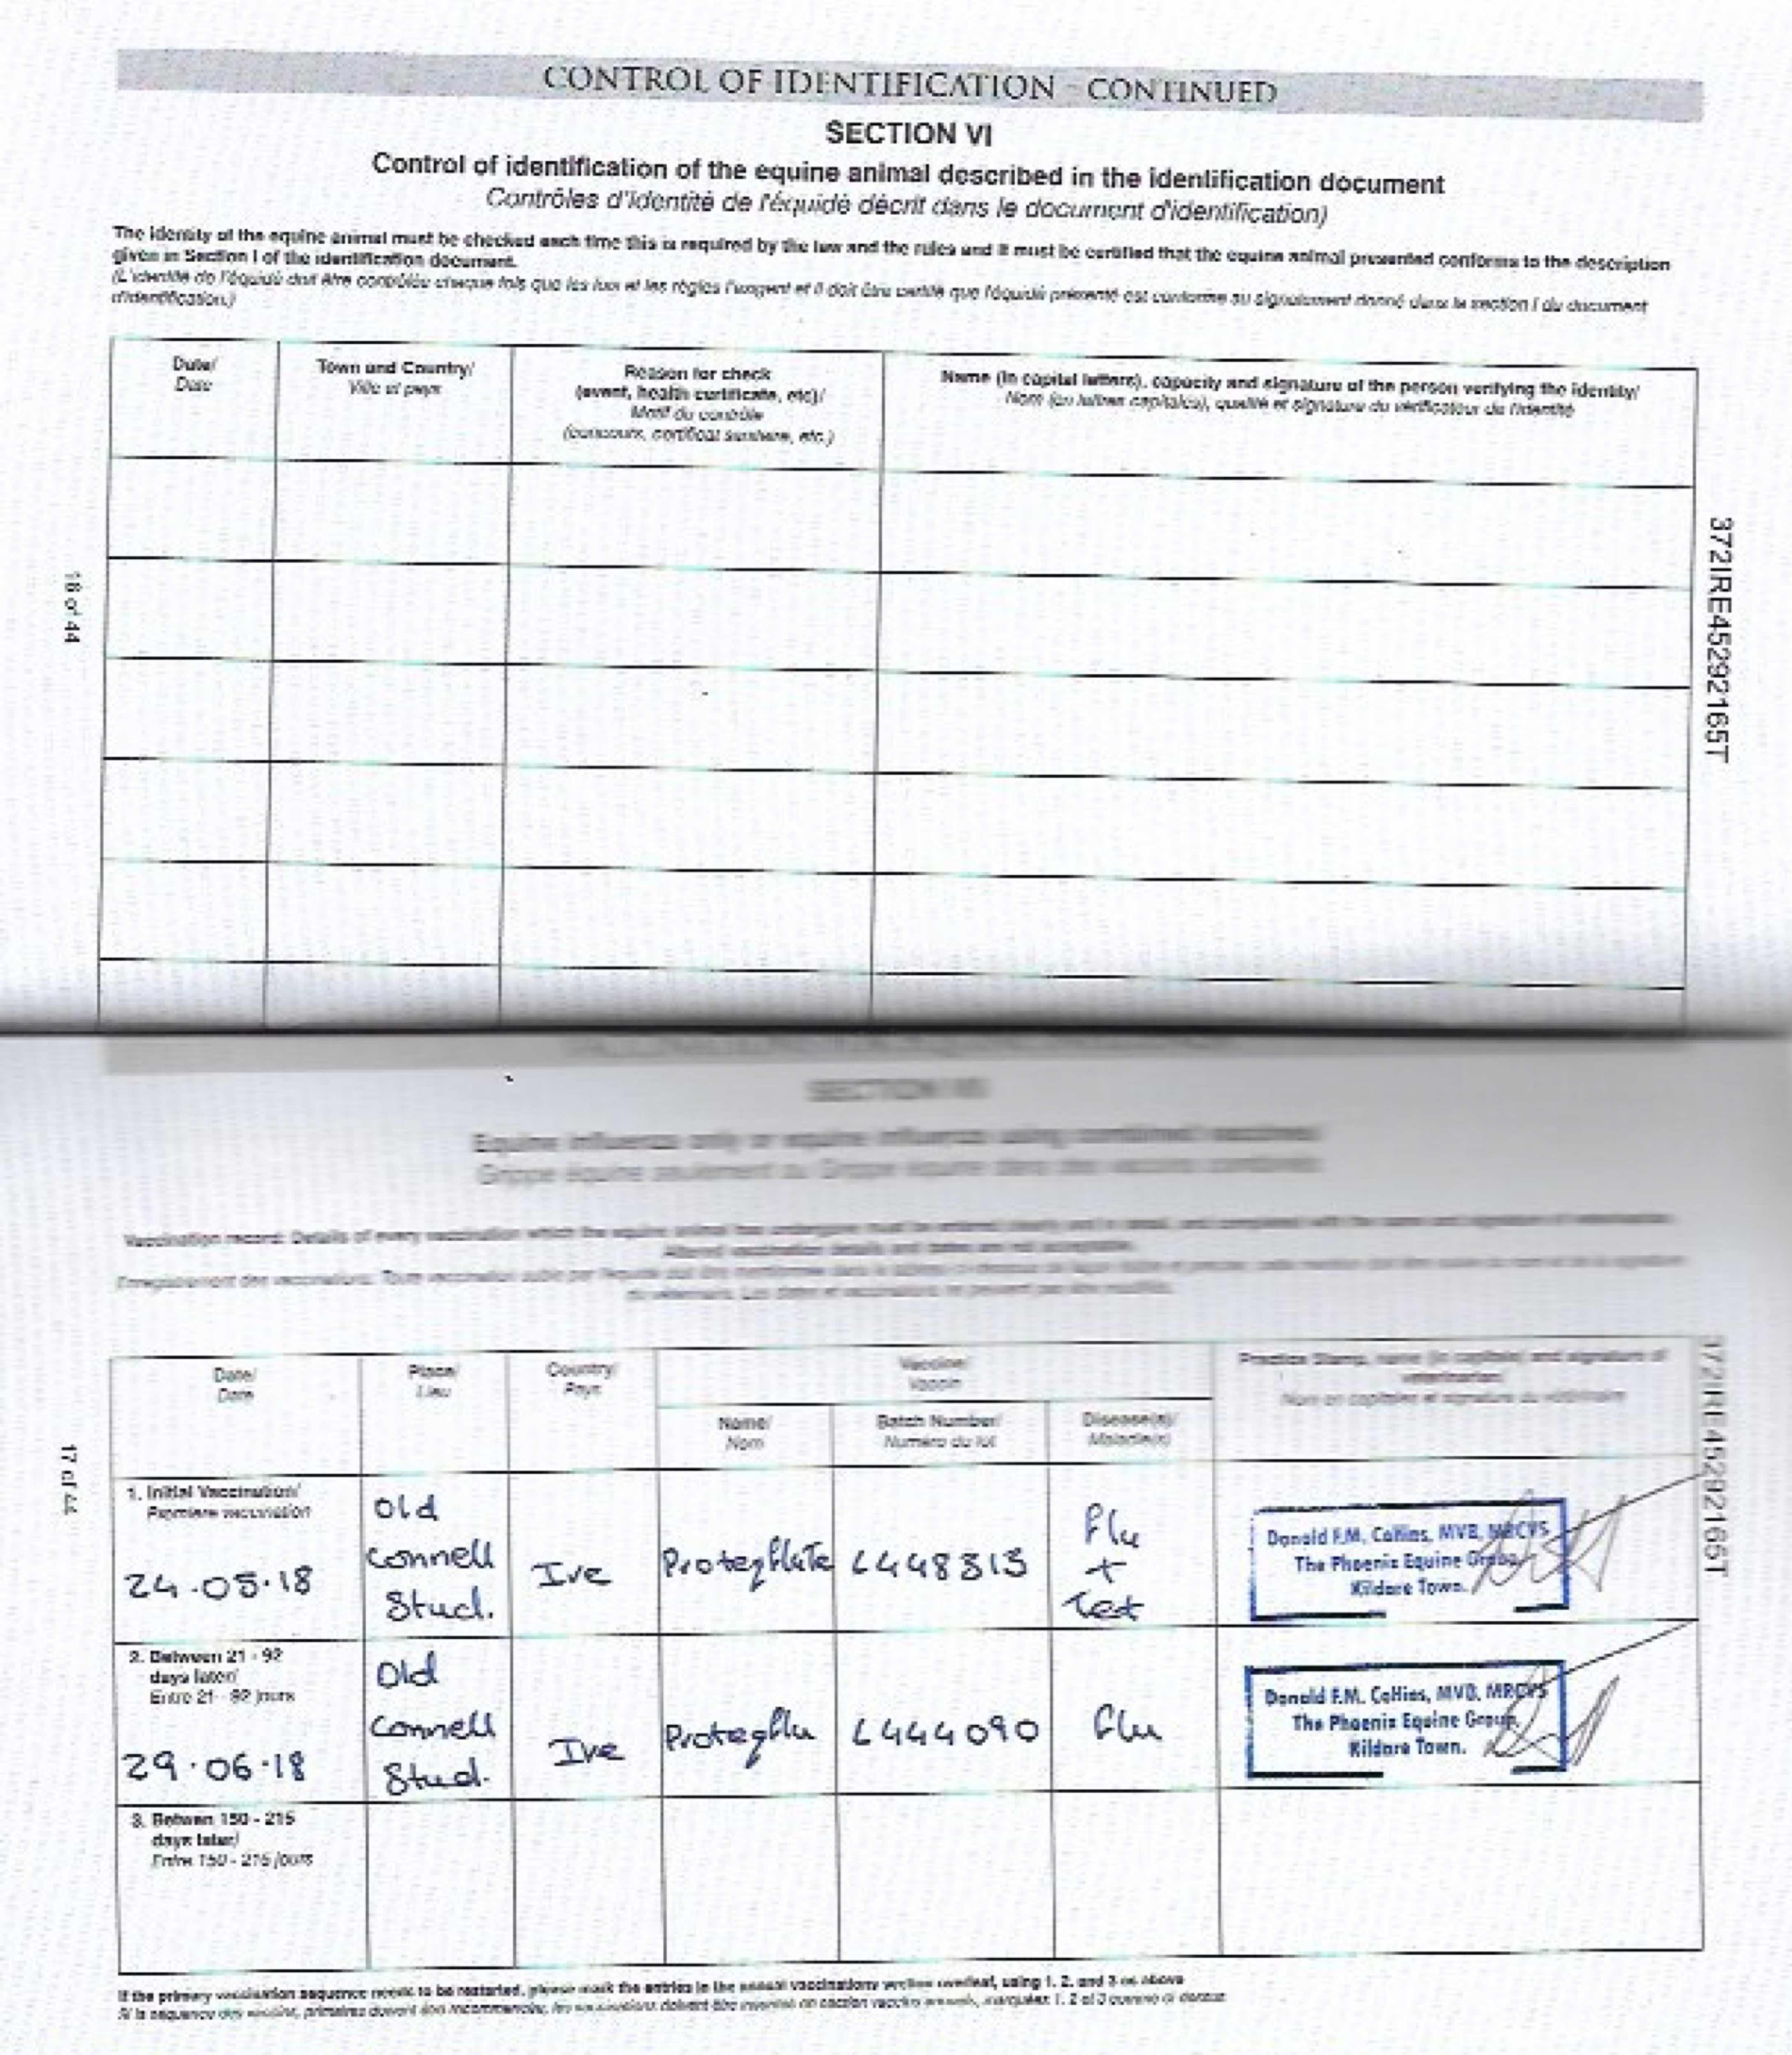 CONTROL OF IDENTIFICATION - CONTINUED
SECTION VI
Control of identification of the equine animal described in the identification document
Contrôles d'identité de l'équidé décrit dans le document d'identification)
The identity of the equine animal must be checked each time this is required by the law and the rules and it must be certified that the equine animal presented conforms to the description
given in Section I of the identification document.
(L'identité de l'équidé doit être contrôlée chaque fois que les lois et les règles l'exigent et il doit être certifié que l'équidé présenté est conforme au signalement donné dans la section I du document
d'identification.)
Date/
Date
Town and Country/
Ville et pays
Reason for check
(event, health certificate, etc)/
Motif du contrôle
(concours, certificat sanitaire, etc.)
Name (in capital letters), capacity and signature of the person verifying the identity/
Nom (en lettres capitales), qualité et signature du vérificateur de l'identité
16 of 44
372IRE45292165T
SECTION VII
Equine influenza only or equine influenza using combined vaccines
Grippe équine seulement ou Grippe équine dans des vaccins combinés
Vaccination record: Details of every vaccination which the equine animal has undergone must be entered clearly and in detail, and completed with the name and signature of veterinarian.
Altered vaccination details and dates are not acceptable.
Date/
Date
Place/
Lieu
Country/
Pays
Vaccine/
Vaccin
Name/
Nom
Batch Number/
Numéro du lot
Disease(s)/
Maladie(s)
Practice Stamp, name (in capitals) and signature of
veterinarian/
Nom en capitales et signature du vétérinaire
17 of 44
372IRE45292165T
1. Initial Vaccination/
Première vaccination
24.05.18
Old
Connell
Stud.
Ire
ProteqfluTe
L448313
Flu
+
Tet
Donald F.M. Collins, MVB, MRCVS
The Phoenix Equine Group,
Kildare Town.
2. Between 21 - 92
days later/
Entre 21 - 92 jours
29.06.18
Old
Connell
Stud.
Ire
Proteqflu
L444090
Flu
Donald F.M. Collins, MVB, MRCVS
The Phoenix Equine Group,
Kildare Town.
3. Between 150 - 215
days later/
Entre 150 - 215 jours
If the primary vaccination sequence needs to be restarted, please mark the entries in the annual vaccinations section overleaf, using 1, 2, and 3 as above